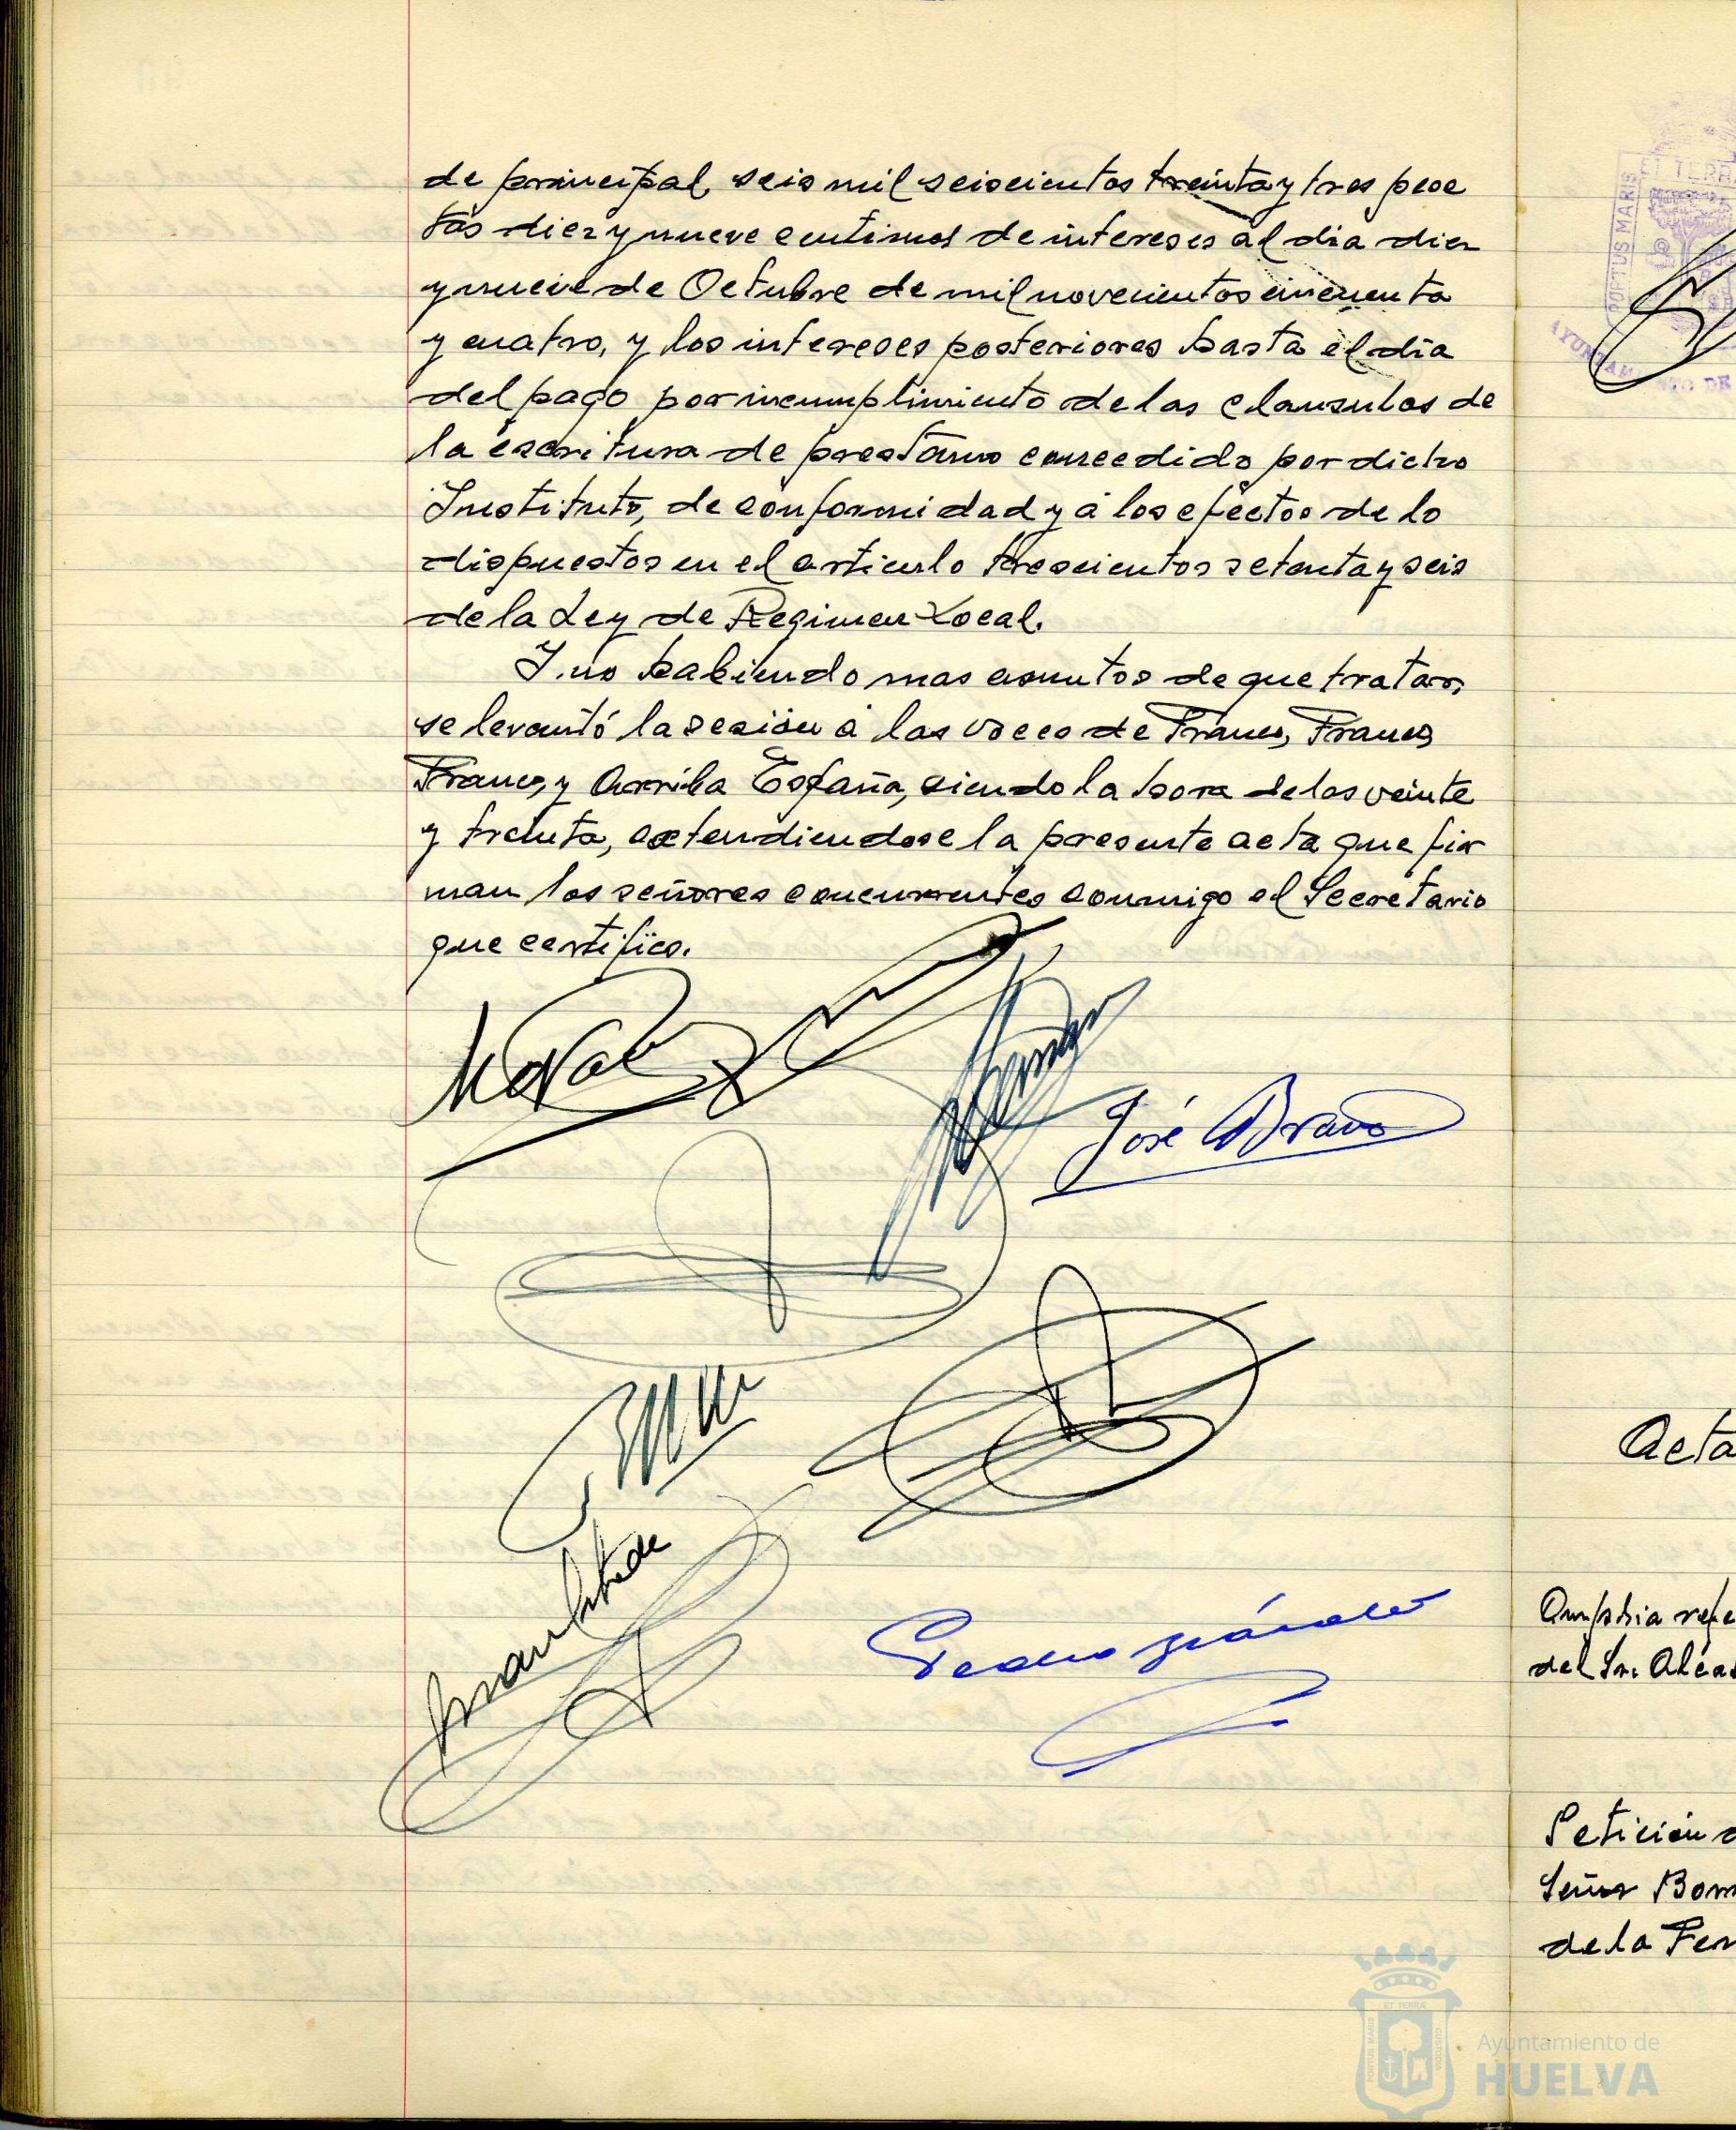 de principal, seis mil seiscientos treinta y tres pese
tas diez y nueve centimos de intereses al dia diez
y nueve de Octubre de mil novecientos cincuenta
y cuatro, y los intereses posteriores hasta el dia
del pago por incumplimiento de las clausulas de
la escritura de prestamo concedido por dicho
Instituto, de conformidad y á los efectos de lo
dispuestos en el articulo trescientos setenta y seis
de la Ley de Regimen Local.
Y no habiendo mas asuntos de que tratar,
se levantó la sesión á las voces de Franco, Franco,
Franco, y Arriba España, siendo la hora de las veinte
y treinta, extendiendose la presente acta que fir
man los señores concurrentes conmigo el Secretario
que certifico.
José Bravo
Pedro
ET TERRA
PORTUS MARIS
AYUNTAMIENTO DE
Acta
Amplia refe
del Sr. Alcal
Petición d
Señor Borr
de la Fer
Ayuntamiento de
HUELVA